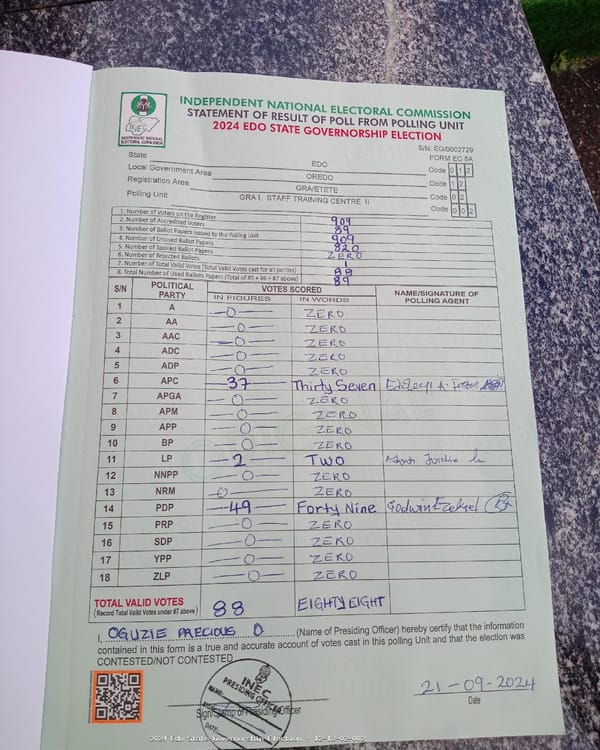 INDEPENDENT NATIONAL ELECTORAL COMMISSION
STATEMENT OF RESULT OF POLL FROM POLLING UNIT
2024 EDO STATE GOVERNORSHIP ELECTION
INEC
INDEPENDENT NATIONAL ELECTORAL COMMISSION
S/N: EG/0002729
FORM EC 8A
State EDO Code 0 1 2
Local Government Area OREDO Code 1 2
Registration Area GRA/ETETE Code 0 2
Polling Unit GRA I, STAFF TRAINING CENTRE II Code 0 0 2
1. Number of Voters on the Register 909
2. Number of Accredited Voters 89
3. Number of Ballot Papers Issued to the Polling Unit 909
4. Number of Unused Ballot Papers 820
5. Number of Spoiled Ballot Papers ZERO
6. Number of Rejected Ballots 1
7. Number of Total Valid Votes (Total Valid Votes cast for all parties) 88
8. Total Number of Used Ballots Papers (Total of #5 + #6 + #7 above) 89
S/N POLITICAL PARTY VOTES SCORED NAME/SIGNATURE OF POLLING AGENT
IN FIGURES IN WORDS
1 A 0 ZERO
2 AA 0 ZERO
3 AAC 0 ZERO
4 ADC 0 ZERO
5 ADP 0 ZERO
6 APC 37 Thirty Seven
7 APGA 0 ZERO
8 APM 0 ZERO
9 APP 0 ZERO
10 BP 0 ZERO
11 LP 2 TWO
12 NNPP 0 ZERO
13 NRM 0 ZERO
14 PDP 49 Forty Nine Godwin Ezekiel
15 PRP 0 ZERO
16 SDP 0 ZERO
17 YPP 0 ZERO
18 ZLP 0 ZERO
TOTAL VALID VOTES 88 EIGHTY EIGHT
(Record Total Valid Votes under #7 above)
I, OGUZIE PRECIOUS O (Name of Presiding Officer) hereby certify that the information
contained in this form is a true and accurate account of votes cast in this polling Unit and that the election was
CONTESTED/NOT CONTESTED
INEC
PRESIDING OFFICER
NAME:
DATE:
21-09-2024
Date
2024 Edo State Governorship Election - 12-12-02-002